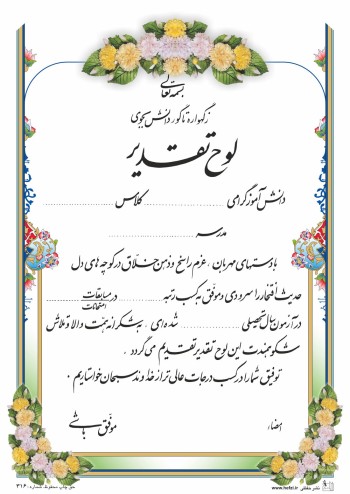 بسمه تعالی
زگهواره تا گور دانش بجوی
لوح تقدیر
دانش آموز گرامی ........ کلاس ........
مدرسه ........
با دستهای مهربان ، عزم راسخ و ذهن خلّاق در کوچه های دل
حدیث افتخار را سرودی و موفّق به کسب رتبه ........ در مسابقات
امتحانات
در آزمون سال تحصیلی ........ شده ای ، به شکرانه همّت والا و تلاش
شکوهمندت این لوح تقدیر تقدیم می گردد .
توفیق شما را در کسب درجات عالی تر از خداوند سبحان خواستاریم .
امضاء
موفّق باشی
نشر حافظی www.hafzi.ir
حق چاپ محفوظ. شماره : ۳۱۶